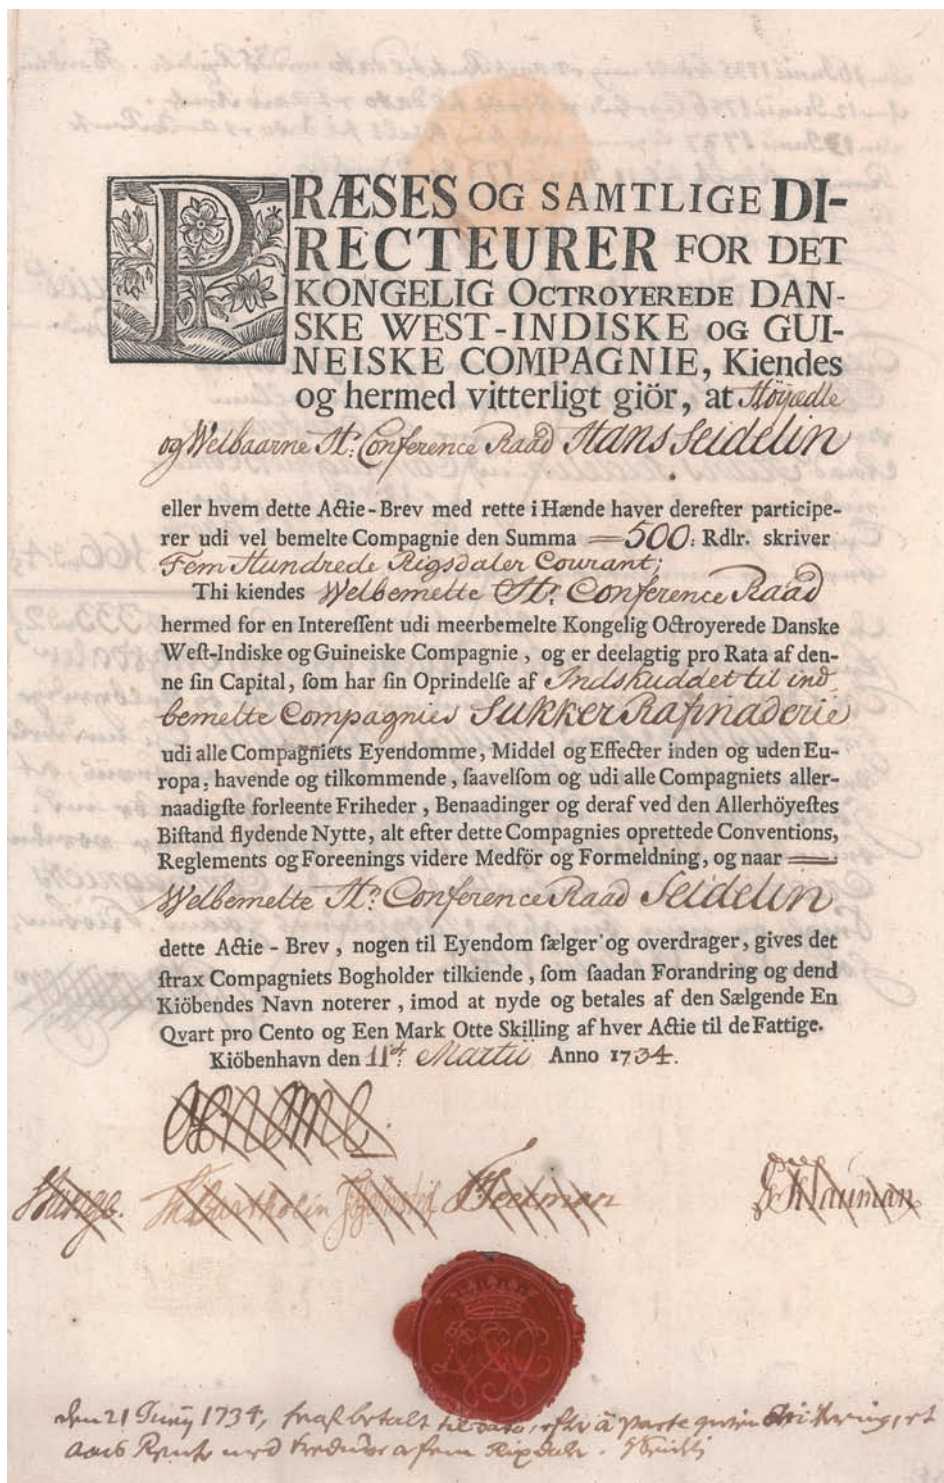 PRÆSES OG SAMTLIGE DI-
RECTEURER FOR DET
KONGELIG OCTROYEREDE DAN-
SKE WEST-INDISKE OG GUI-
NEISKE COMPAGNIE, Kiendes
og hermed vitterligt giör, at Höyædle
og Welbaarne Hr. Conference Raad Hans Seidelin
eller hvem dette Actie-Brev med rette i Hænde haver derefter participe-
rer udi vel bemelte Compagnie den Summa 500: Rdlr. skriver
Fem Hundrede Rigsdaler Courant;
Thi kiendes Welbemelte Hr. Conference Raad
hermed for en Interessent udi meerbemelte Kongelig Octroyerede Danske
West-Indiske og Guineiske Compagnie, og er deelagtig pro Rata af den-
ne sin Capital, som har sin Oprindelse af Indskuddet til ind
bemelte Compagnies Sukker Rafinaderie
udi alle Compagniets Eyendomme, Middel og Effecter inden og uden Eu-
ropa, havende og tilkommende, saavelsom og udi alle Compagniets aller-
naadigste forleente Friheder, Benaadinger og deraf ved den Allerhöyestes
Bistand flydende Nytte, alt efter dette Compagnies oprettede Conventions,
Reglements og Foreenings videre Medför og Formeldning, og naar
Welbemelte Hr. Conference Raad Seidelin
dette Actie-Brev, nogen til Eyendom sælger og overdrager, gives det
strax Compagniets Bogholder tilkiende, som saadan Forandring og dend
Kiöbendes Navn noterer, imod at nyde og betales af den Sælgende En
Qvart pro Cento og Een Mark Otte Skilling af hver Actie til de Fattige.
Kiöbenhavn den 11t. Martii Anno 1734.
Bartholin
den 21 Junij 1734, betalt